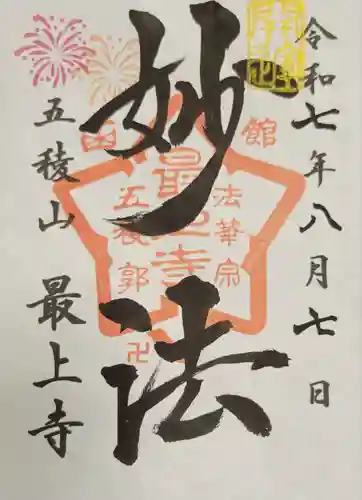 令和七年八月七日
妙法
五稜山 最上寺
函館
法華宗
最上寺
五稜郭
卍